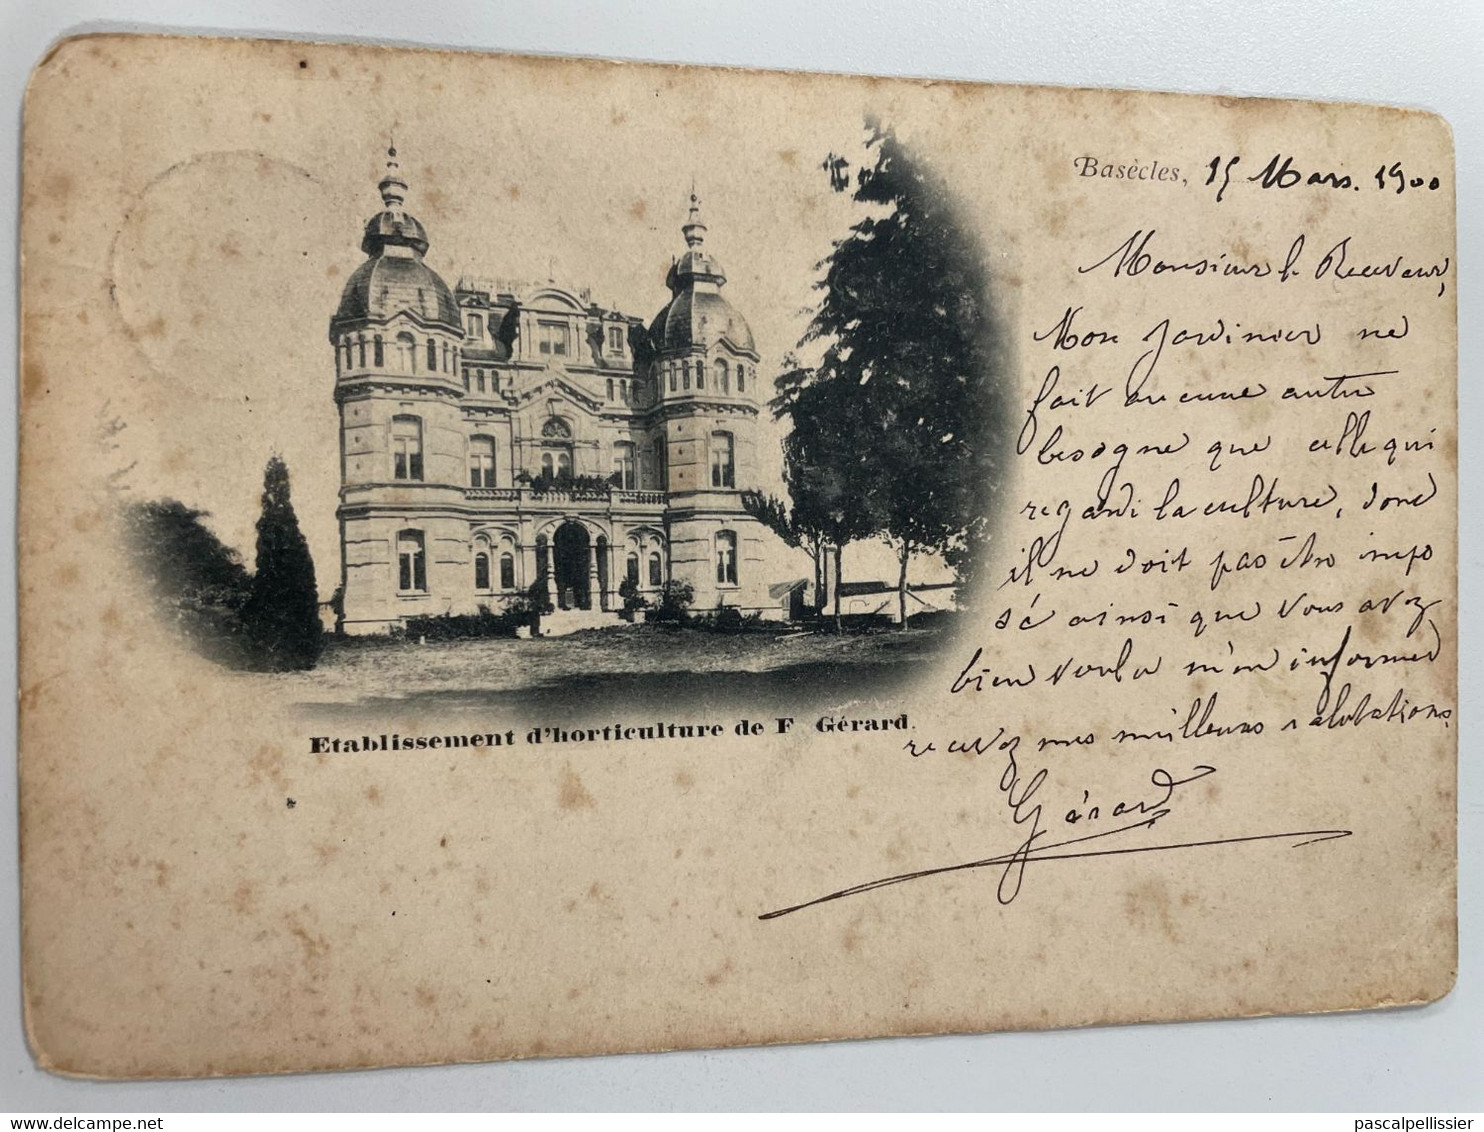 Basècles, 15 Mars. 1900
Monsieur le Receveur,
Mon Jardinier ne
fait aucune autre
besogne que celle qui
regarde la culture, donc
il ne doit pas être impo
sé ainsi que vous avez
bien voulu m'en informer
recevez mes meilleures salutations.
Gérard
Etablissement d'horticulture de F Gérard.
www.delcampe.net
pascalpellissier